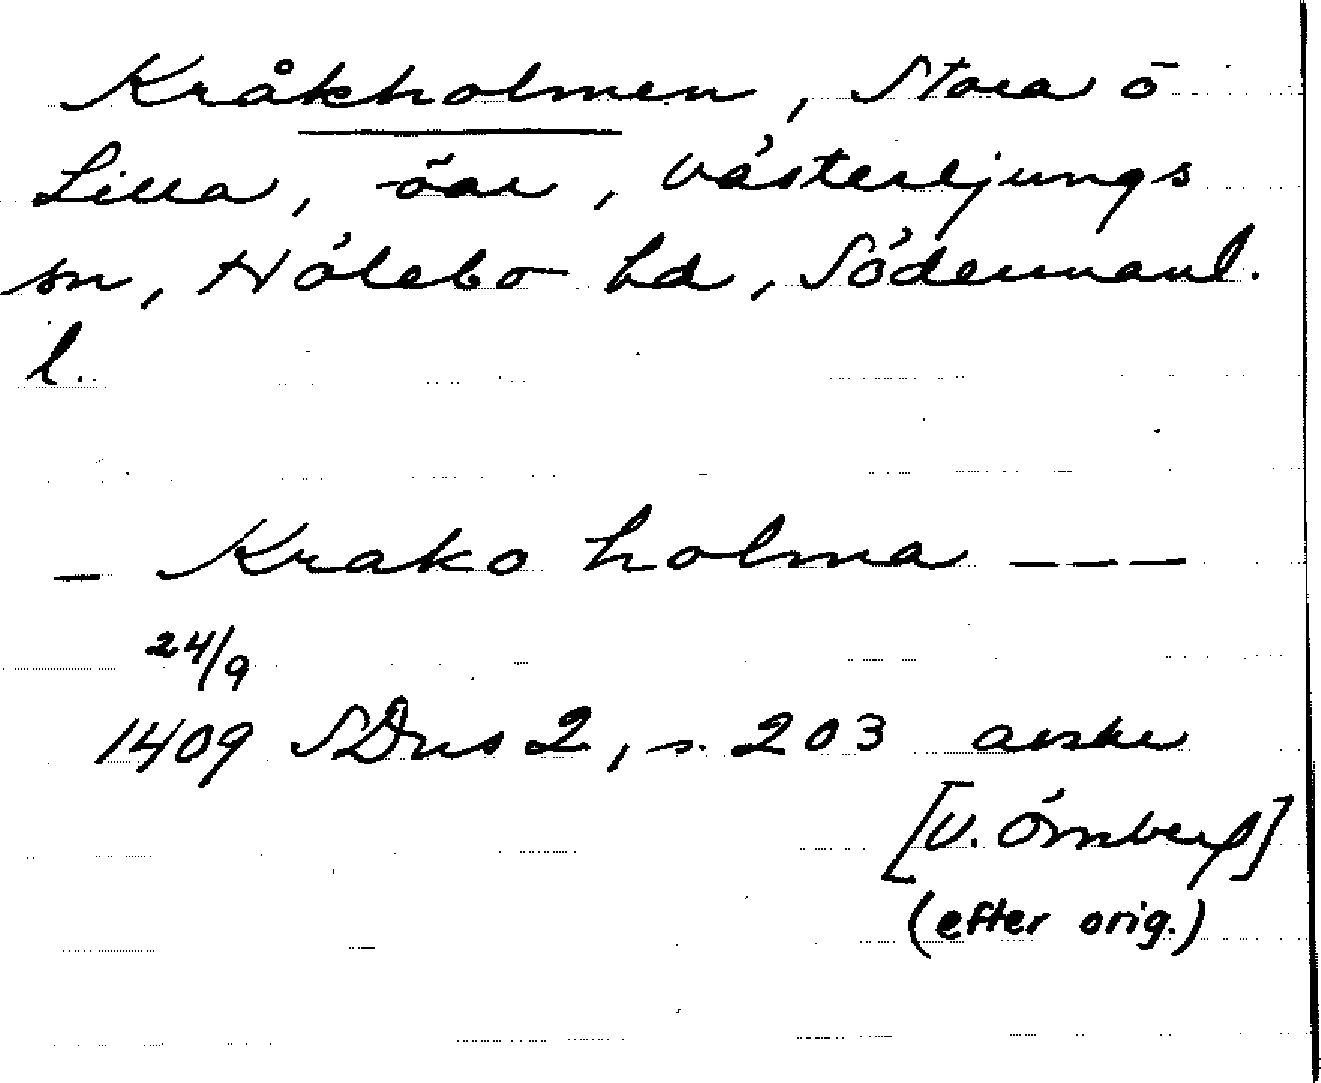 Kråkholmen, Stora o
Lilla, öar, Västerljungs
sn, Hölebo hd, Södermanl.
l.
– Krako holma – – –
24/9
1409 SDns 2, s. 203 avskr
[V. Örnberg]
(efter orig.)